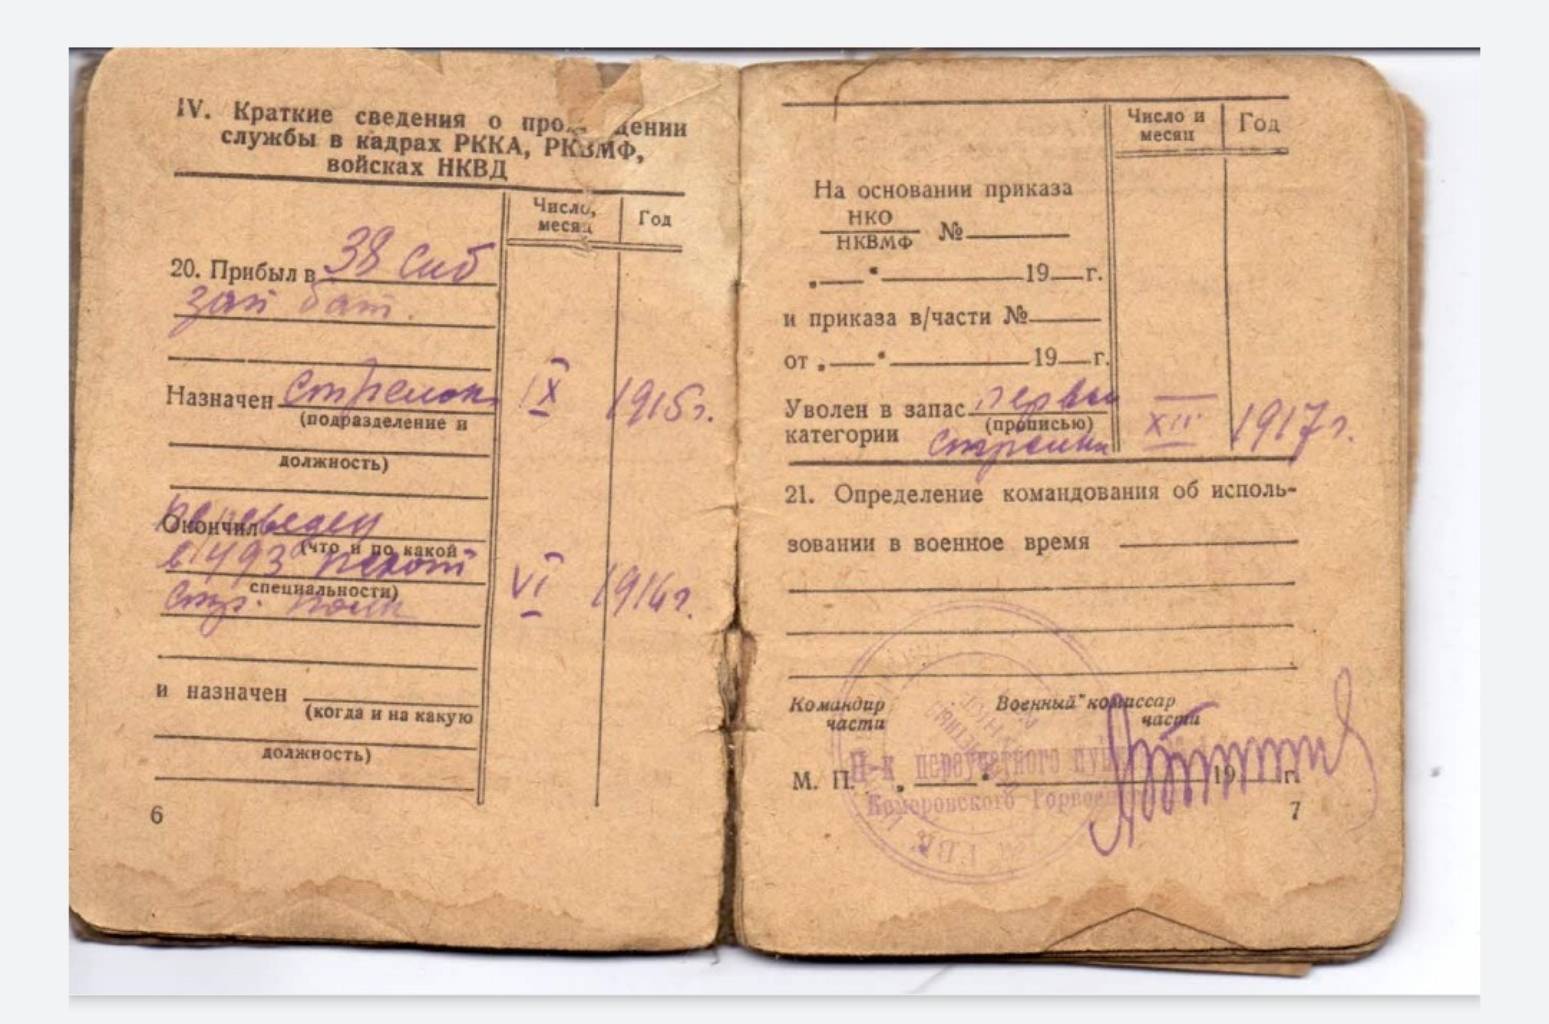 IV. Краткие сведения о про дении
службы в кадрах РККА, РКВМФ,
войсках НКВД
Число, месяц
Год
20. Прибыл в 38 Сиб
зап бат.
Назначен Стрелок IX 1915г.
(подразделение и
должность)
Окончил переведен
(что и по какой
в 493 пехот
специальности)
VI 1916г.
стр. полк
и назначен
(когда и на какую
должность)
6
Число и месяц
Год
На основании приказа
НКО
НКВМФ №
„ “ 19 г.
и приказа в/части №
от „ “ 19 г.
Уволен в запас первый
(прописью)
XII 1917г.
категории Стрелка
21. Определение командования об исполь-
зовании в военное время
Командир части
Военный комиссар части
Н-к переучетного
М. П. „ “ 19 г.
Кемеровского Горвоен
7